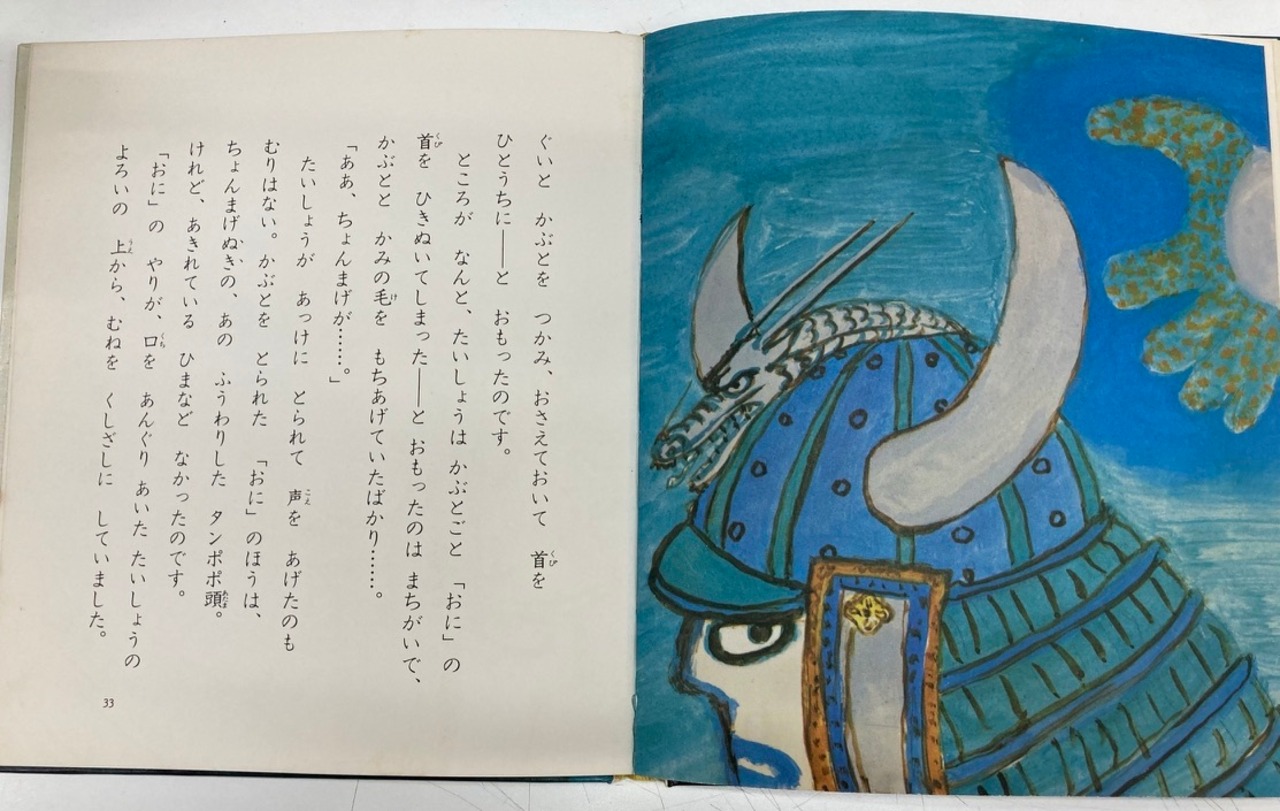 ぐいと　かぶとを　つかみ、おさえておいて　首を
ひとうちに――と　おもったのです。
　ところが　なんと、たいしょうは　かぶとごと　「おに」の
首を　ひきぬいてしまった――と　おもったのは　まちがいで、
かぶとと　かみの毛を　もちあげていたばかり……。
「ああ、ちょんまげが……。」
　たいしょうが　あっけに　とられて　声を　あげたのも
むりはない。かぶとを　とられた　「おに」のほうは、
ちょんまげぬきの、あの　ふうわりした　タンポポ頭。
けれど、あきれている　ひまなど　なかったのです。
　「おに」の　やりが、口を　あんぐり　あいた　たいしょうの
よろいの　上から、むねを　くしざしに　していました。
33